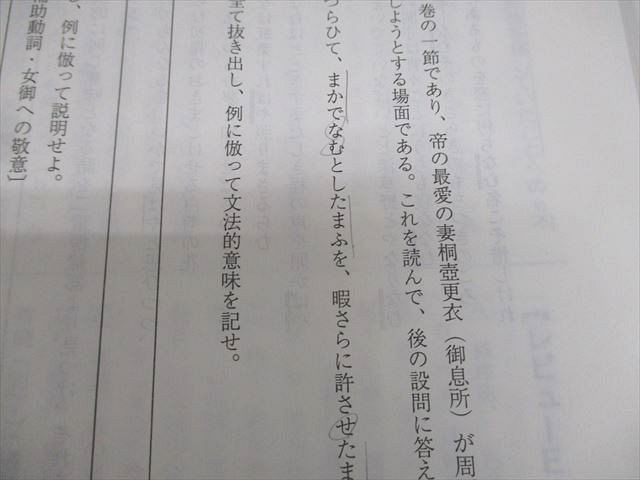 巻の一節であり、帝の最愛の妻桐壺更衣（御息所）が周
しようとする場面である。これを読んで、後の設問に答え
つらひて、まかでなむとしたまふを、暇さらに許させたま
全て抜き出し、例に倣って文法的意味を記せ。
、例に倣って説明せよ。
補助動詞・女御への敬意］